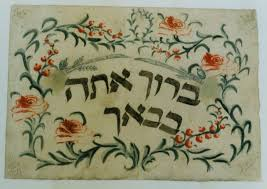 ברוך אתה
בבאך